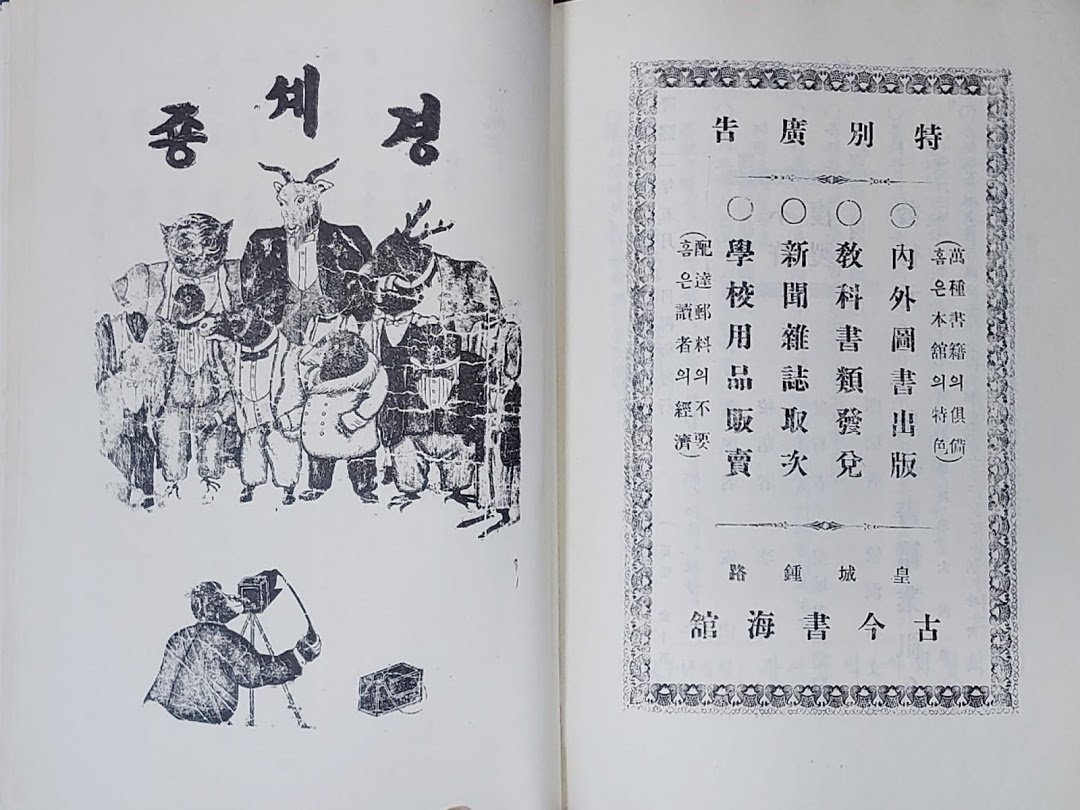 경셰죵
特別廣告
(萬種書籍의俱備
ᄒᆞᆷ은本舘의特色)
○內外圖書出版
○敎科書類發兌
○新聞雜誌取次
○學校用品販賣
(配達郵料의不要
ᄒᆞᆷ은讀者의經濟)
皇城鍾路
古今書海舘